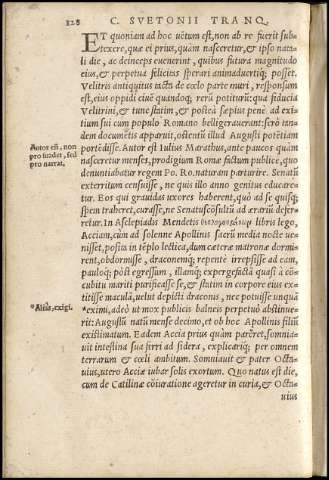 128 C. SVETONII TRANQ.
ET quoniam ad hoc uẽtum est, non ab re fuerit sub-
texere, quæ ei prius, quàm nasceretur, & ipso nata-
li die, ac deinceps euenerint, quibus futura magnitudo
eius, & perpetua felicitas sperari animaduertiq; posset.
Velitris antiquitus tacta de cœlo parte muri, responsum
est, eius oppidi ciuẽ quandoq; rerũ potiturũ: qua fiducia
Velitrini, & tunc statim, & posteà sæpius penè ad exi-
tium sui cum populo Romano belligerauerant: serò tan-
dem documẽtis apparuit, ostentũ illud Augusti potẽtiam
portẽdisse. Autor est Iulius Marathus, ante paucos quàm
nasceretur menses, prodigium Romæ factum publice, quo
denuntiabatur regem Po. Ro. naturam parturire. Senatũ
exterritum censuisse, ne quis illo anno genitus educare-
tur. Eos qui grauidas uxores haberent, quò ad se quisq;
spem traheret, curasse, ne Senatuscõsultũ ad ærariũ defer-
retur. In Asclepiadis Mendetis libris lego,
Acciam, cùm ad solenne Apollinis sacrũ media nocte ue-
nisset, posita in tẽplo lectica, dum cæteræ matronæ dormi-
rent, obdormisse, draconemq; repentè irrepsisse ad eam,
pauloq; pòst egressum, illamq; expergefactã quasi à cõ-
cubitu mariti purificasse se, & statim in corpore eius ex-
titisse maculã, uelut depicti draconis, nec potuisse unquã
*eximi, adeò ut mox publicis balneis perpetuò abstinue-
rit: Augustũ natũ mense decimo, et ob hoc Apollinis filiũ
existimatum. Eadem Accia prius quàm parẽret, somnia-
uit intestina sua ferri ad sidera, explicariq; per omnem
terrarum & cœli ambitum. Somniauit & pater Octa-
uius, utero Acciæ iubar solis exortum. Quo natus est die,
cum de Catilinæ cõiuratione ageretur in curia, & Octa-
uius
Autor est, non
pro suadet, sed
pro narrat.
*Aliàs, exigi.